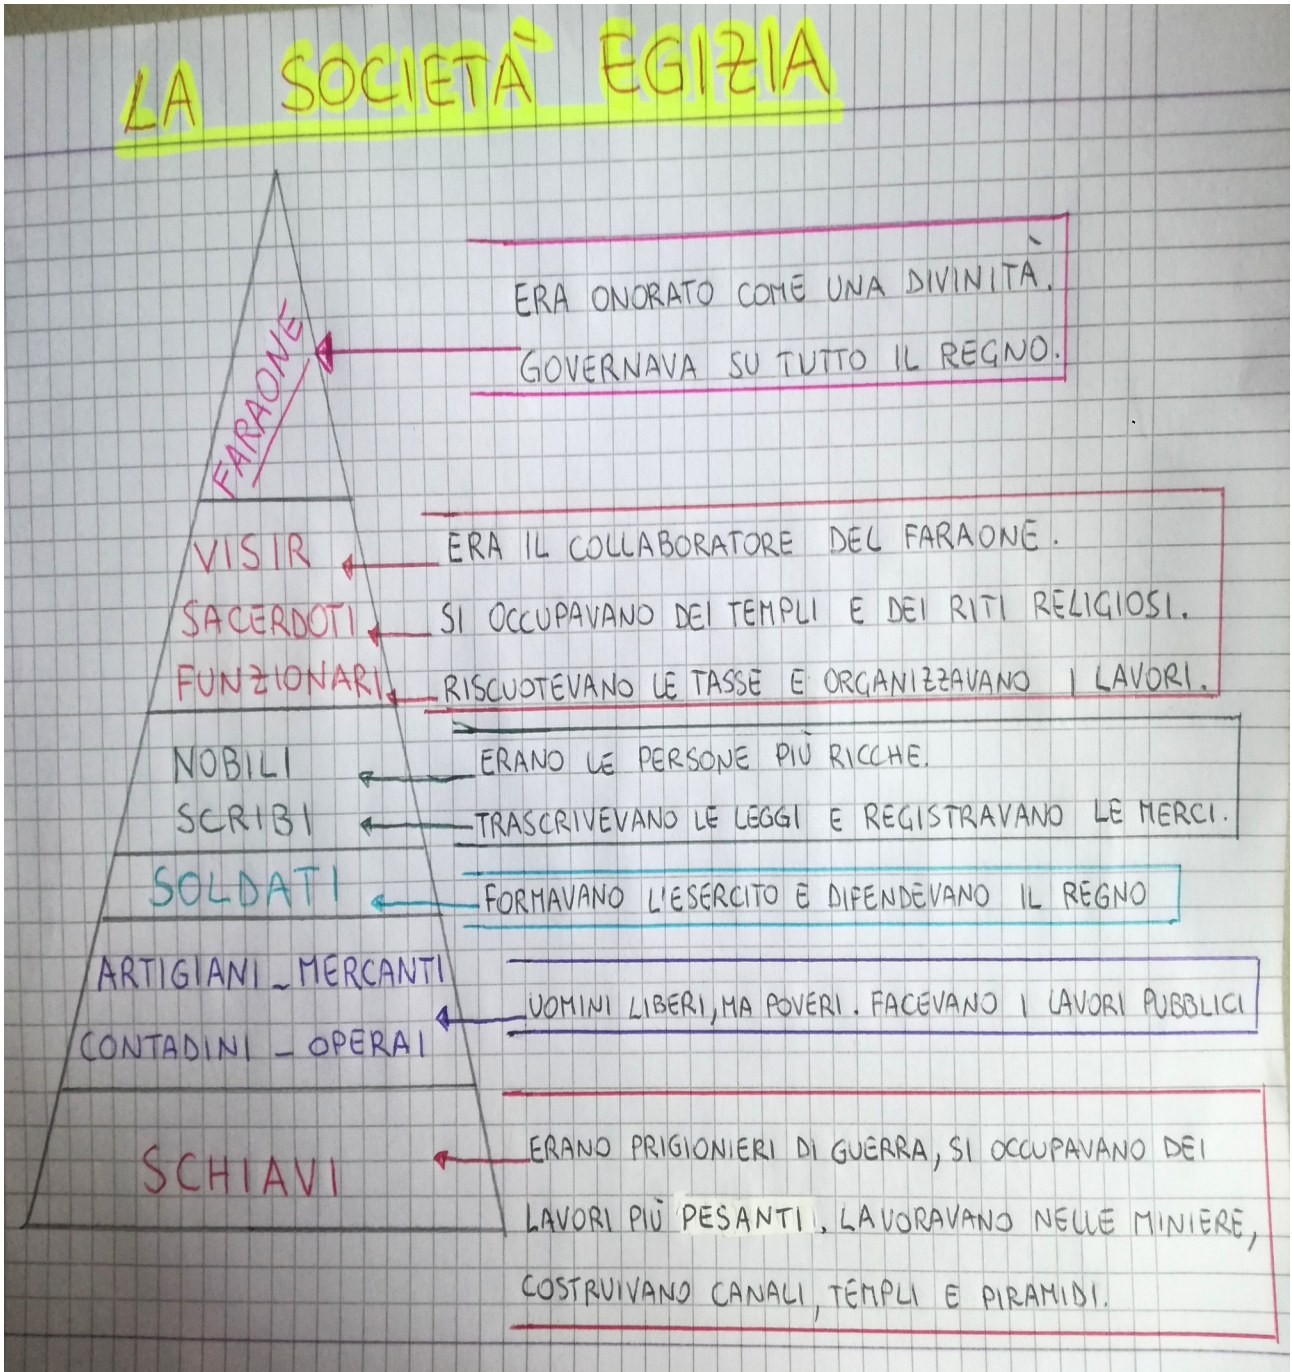 LA SOCIETÀ EGIZIA
FARAONE
ERA ONORATO COME UNA DIVINITÀ.
GOVERNAVA SU TUTTO IL REGNO.
VISIR
ERA IL COLLABORATORE DEL FARAONE.
SACERDOTI
SI OCCUPAVANO DEI TEMPLI E DEI RITI RELIGIOSI.
FUNZIONARI
RISCUOTEVANO LE TASSE E ORGANIZZAVANO I LAVORI.
NOBILI
ERANO LE PERSONE PIÙ RICCHE.
SCRIBI
TRASCRIVEVANO LE LEGGI E REGISTRAVANO LE MERCI.
SOLDATI
FORMAVANO L'ESERCITO E DIFENDEVANO IL REGNO
ARTIGIANI - MERCANTI
CONTADINI - OPERAI
UOMINI LIBERI, MA POVERI. FACEVANO I LAVORI PUBBLICI
SCHIAVI
ERANO PRIGIONIERI DI GUERRA, SI OCCUPAVANO DEI
LAVORI PIÙ PESANTI. LAVORAVANO NELLE MINIERE,
COSTRUIVANO CANALI, TEMPLI E PIRAMIDI.